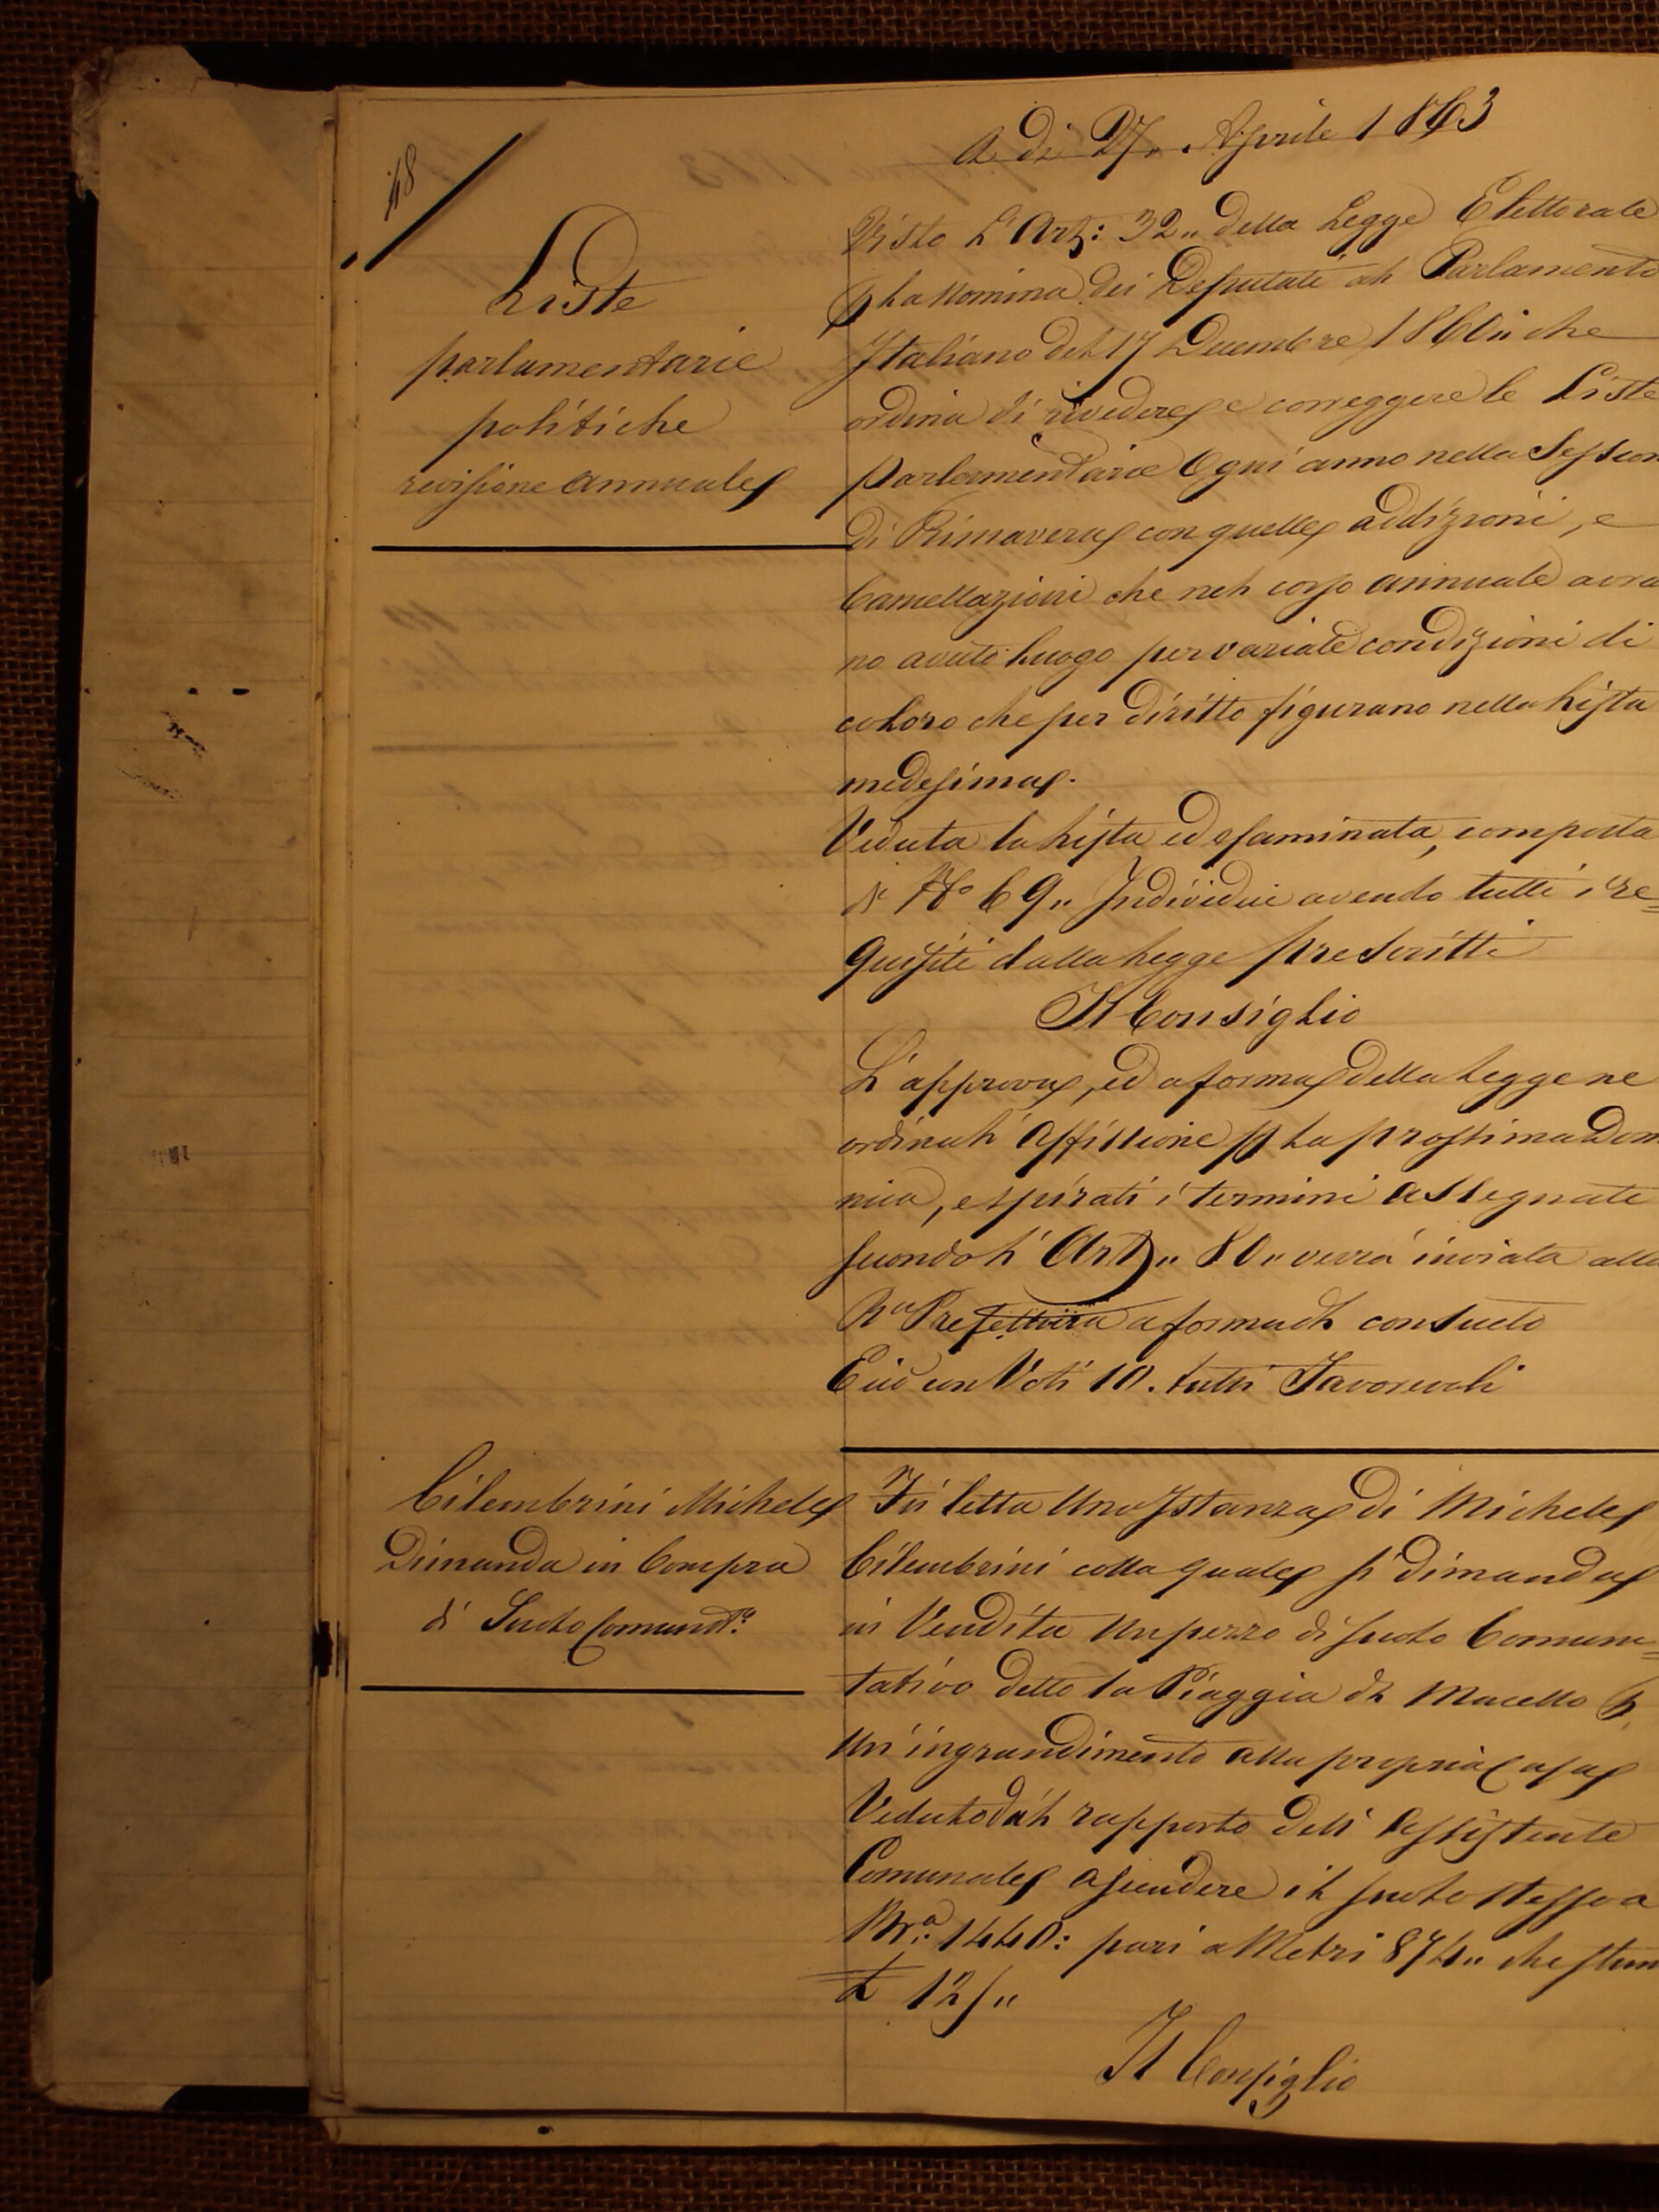 48
A dì 27. Aprile 1863
Liste
parlamentarie
politiche
revisione annuale
Visto L'Art: 32,, della Legge Elettorale
p la Nomina dei Deputati al Parlamento
Italiano del 17 Decembre 1860,, che
ordina di rivedere e correggere le Liste
Parlamentarie Ogni anno nella Session
di Primavera con quelle addizioni, e
Cancellazioni che nel corso annuale avra
no avuto luogo per variate condizioni di
coloro che per diritto figurano nella Lista
medesima.
Veduta la Lista ed esaminata, composta
di No 69,, Individui avendo tutti i re=
quisiti dalla Legge prescritti
Il Consiglio
L'approva, ed a forma della Legge ne
ordina l'affissione p la prossima Dom
nica, e spirati i termini assegnati
secondo l'Art,, 80,, verrà inviata alla
Ra Prefettura a forma dl consueto
E ciò con Voti 10. tutti Favorevoli
Cilembrini Michele
Dimanda in Compra
di Suolo Comunt.o
Fù letta Una Istanza di Michele
Cilembrini colla quale si dimanda
in Vendita Un pezzo di suolo Comuni=
tativo detto la Piaggia dl Macello p
Un'ingrandimento alla propria Casa
Veduto dal rapporto dell'Assistente
Comunale ascendere il suolo stesso a
Bra: 1440: pari a Metri 874,, che stim
£ 125,,
Il Consiglio